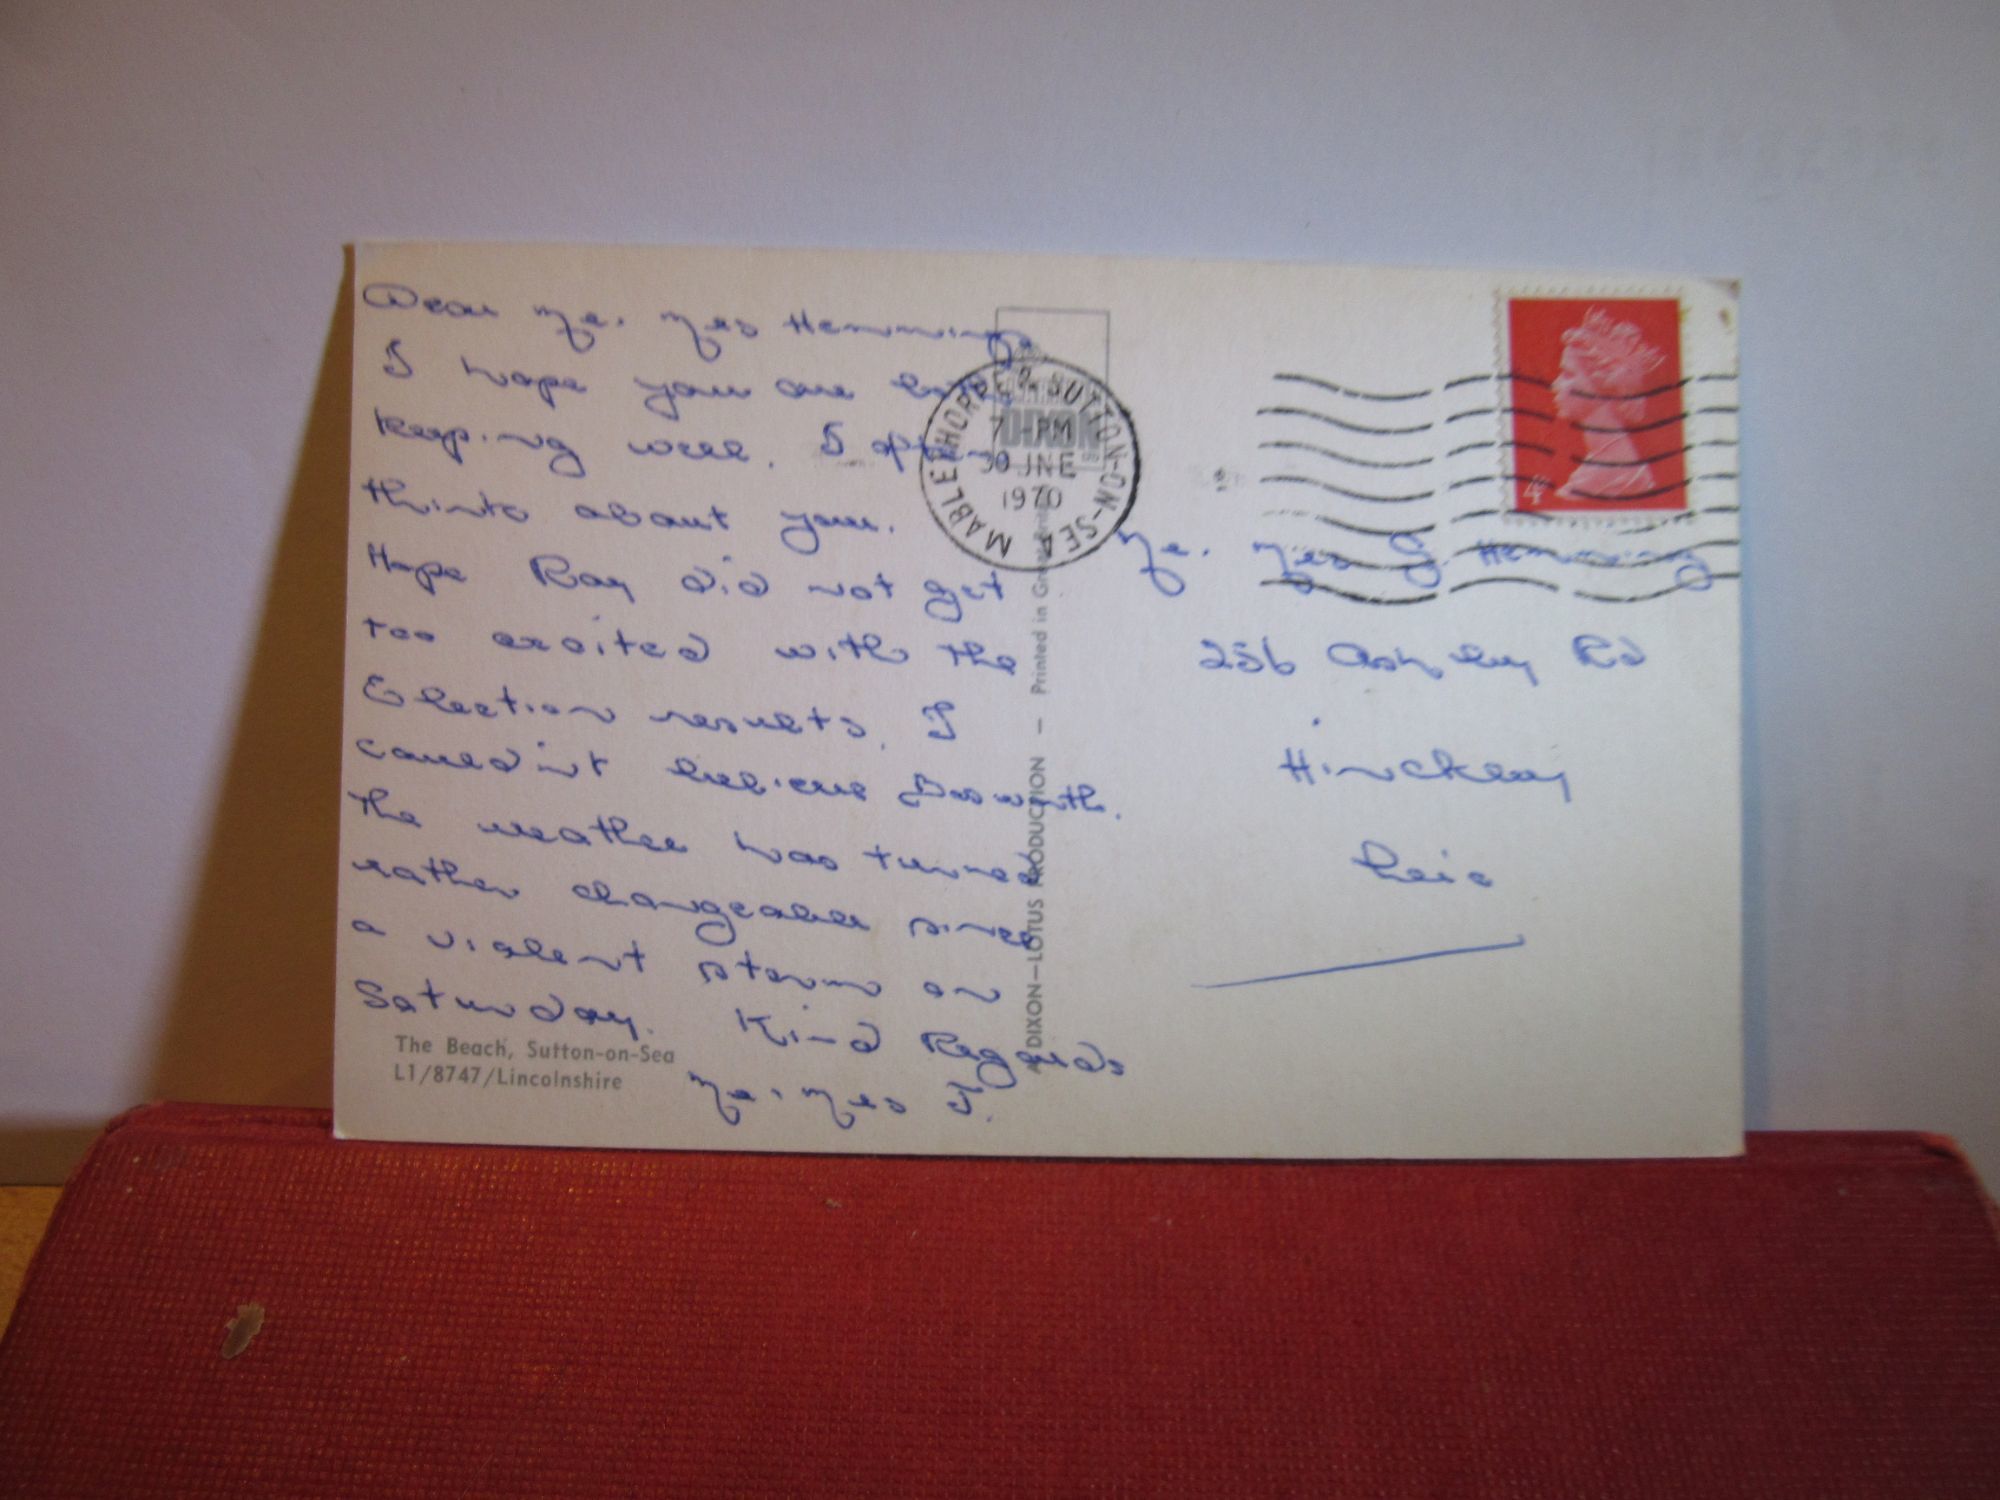 Dear Mr. Mrs Hemmings
I hope you are both
keeping well. I often
think about you.
Hope Ray did not get
too excited with the
Election results, I
could'nt believe Bosworth.
The weather has turned
rather changeable since
a violent storm on
Saturday. Kind Regards
Mr. Mrs J.
The Beach, Sutton-on-Sea
L1/8747/Lincolnshire
MABLETHORPE & SUTTON-ON-SEA
7 PM
30 JNE
1970
DIXON
A DIXON—LOTUS PRODUCTION — Printed in Great
4
Mr. Mrs J. Hemmings
256 Ashby Rd
Hinckley
Leic